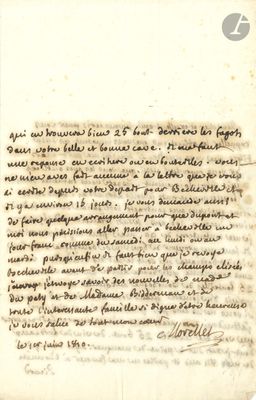 qui en trouvera bien 25 bout. derriere les fagots
dans votre belle et bonne cave. il me faut
une reponse en ecriture ou en bouteilles. vous
ne m'en avés fait aucune à la lettre que je vous
ai ecrite depuis votre depart pour Becheville et
il y a environ 15 jours. je vous demandois aussi
de faire quelque arrangement pour que dupont et
moi nous puissions aller passer à becheville un
jour franc comme du samedi au lundi ou au
mardi puisqu'enfin il faut bien que je revoye
Becheville avant de partir pour les champs elisées
j'envoye savoir des nouvelles de made
du poty et de Madame Bidderman et de
toute l'interessante famille si digne d'etre heureuse
je vous salue de tout mon cœur
Morellet
le 1er juin 1810.